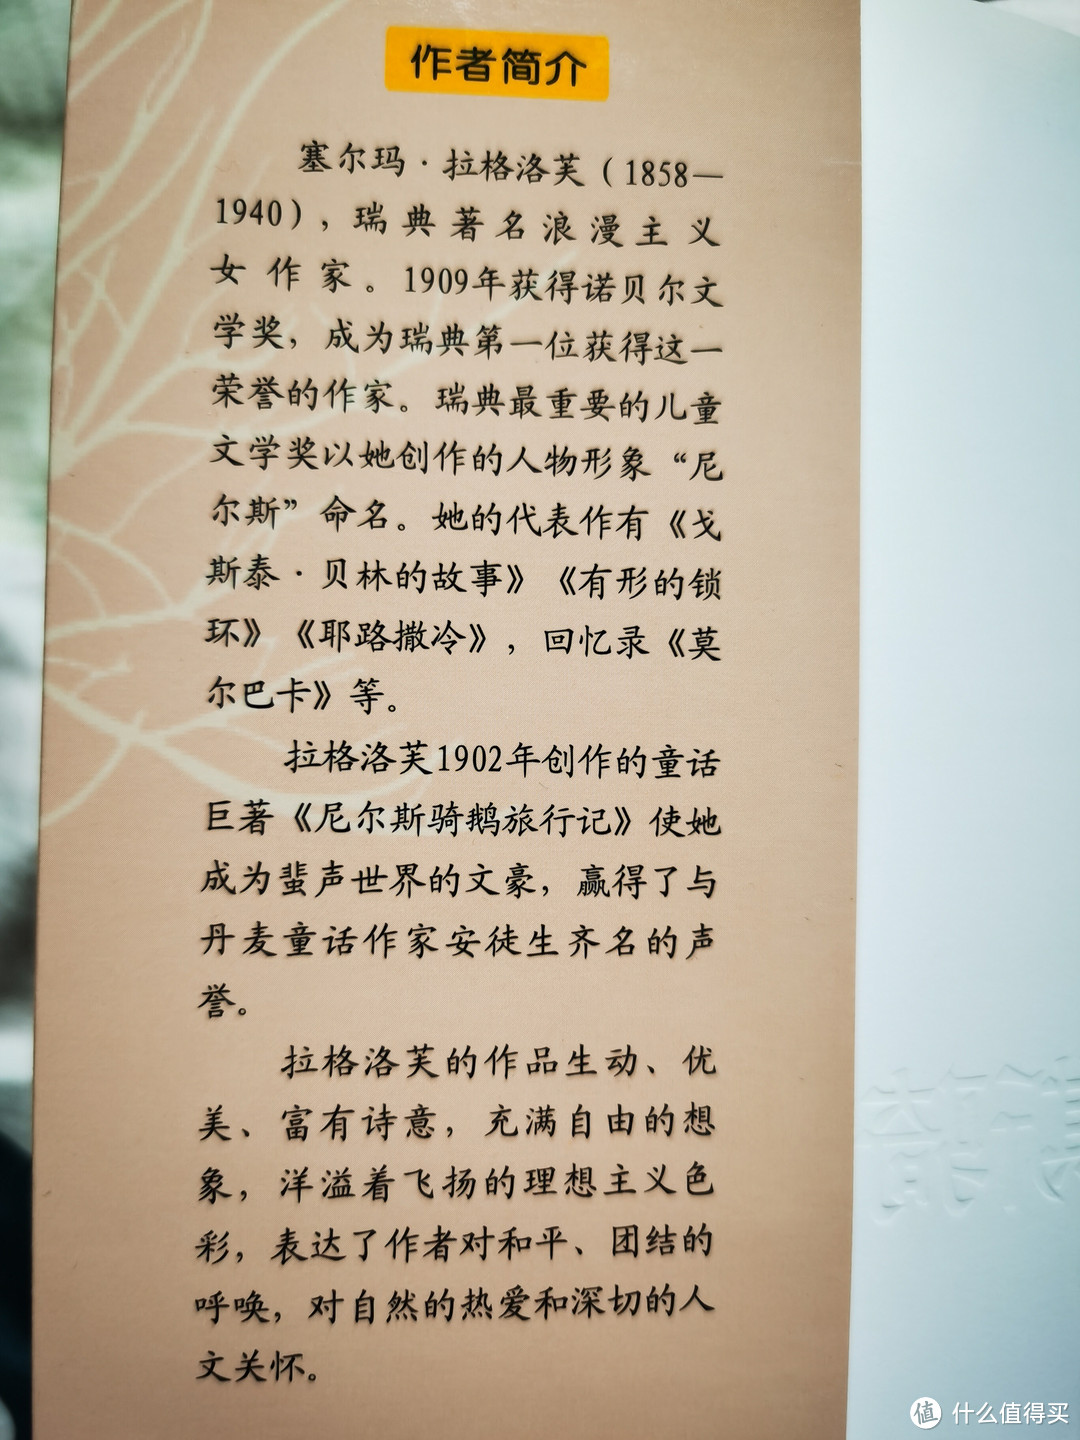 作者简介
塞尔玛·拉格洛芙（1858—
1940），瑞典著名浪漫主义
女作家。1909年获得诺贝尔文
学奖，成为瑞典第一位获得这一
荣誉的作家。瑞典最重要的儿童
文学奖以她创作的人物形象“尼
尔斯”命名。她的代表作有《戈
斯泰·贝林的故事》《有形的锁
环》《耶路撒冷》，回忆录《莫
尔巴卡》等。
拉格洛芙1902年创作的童话
巨著《尼尔斯骑鹅旅行记》使她
成为蜚声世界的文豪，赢得了与
丹麦童话作家安徒生齐名的声
誉。
拉格洛芙的作品生动、优
美、富有诗意，充满自由的想
象，洋溢着飞扬的理想主义色
彩，表达了作者对和平、团结的
呼唤，对自然的热爱和深切的人
文关怀。
值 什么值得买